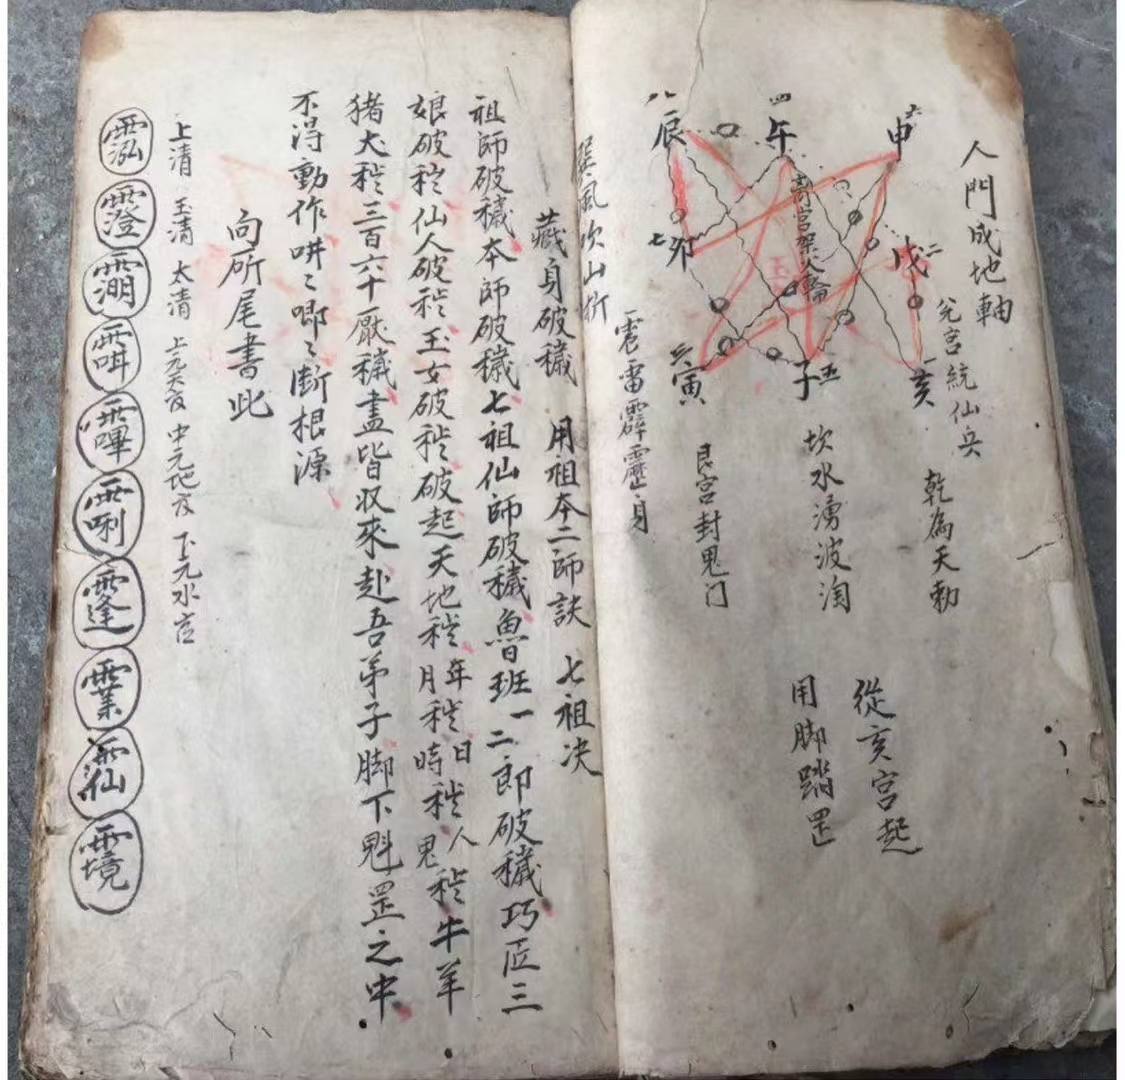 人門成地軸
兌宮統仙兵
乾為天勅
六申
二戌
一亥
四午
離宮架火輪
五子
八辰
七卯
三寅
坎水湧波淘
從亥宮起
用脚踏罡
艮宮封鬼门
震雷霹靂身
巽風吹山折
藏身破穢 用祖本二師訣 七祖决
祖師破穢本師破穢七祖仙師破穢魯班一二郎破穢巧匠三
娘破秽仙人破秽玉女破秽破起天地秽年秽月秽日秽時秽人秽鬼秽牛羊
猪犬秽三百六十厭穢盡皆収來赴吾弟子脚下魁罡之中
不得動作哄〻唧〻断根源
向所尾書此
上清 玉清 太清 上元天官 中元地官 下元水官